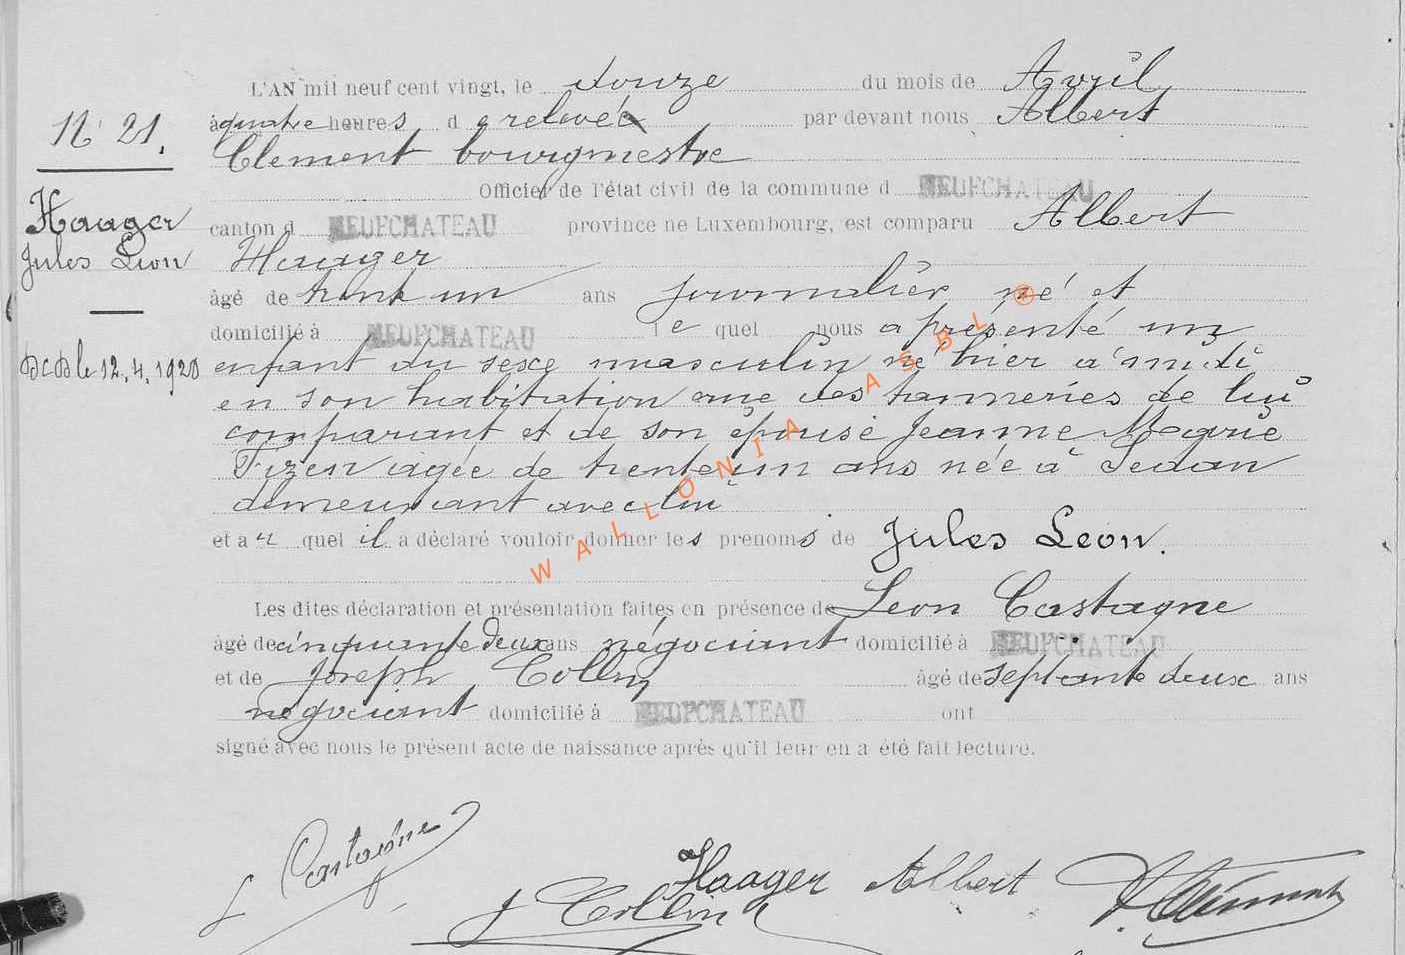 L'AN mil neuf cent vingt, le douze du mois de Avril
N° 21.
à quatre heures d e relevée par devant nous Albert
Clement bourgmestre
Officier de l'état civil de la commune d NEUFCHATEAU
Haager
Jules Leon
canton d NEUFCHATEAU province ne Luxembourg, est comparu Albert
Haager
âgé de trente un ans journalier né et
domicilié à NEUFCHATEAU le quel nous a présenté un
Dcd le 12.4.1920
enfant du sexe masculin né hier à midi
en son habitation rue des tanneries de lui
comparant et de son épouse Jeanne Marie
Fizen agée de trente un ans née à Sedan
demeurant avec lui
et a u quel il a déclaré vouloir donner les prenoms de Jules Leon.
Les dites déclaration et présentation faites en présence de Leon Castagne
âgé de cinquante deux ans négociant domicilié à NEUFCHATEAU
et de Joseph Collin âgé de septante deux ans
négociant domicilié à NEUFCHATEAU ont
signé avec nous le présent acte de naissance après qu'il leur en a été fait lecture.
L Castagne
J Collin
Haager Albert
A. Clement
WALLONIA ASBL ®